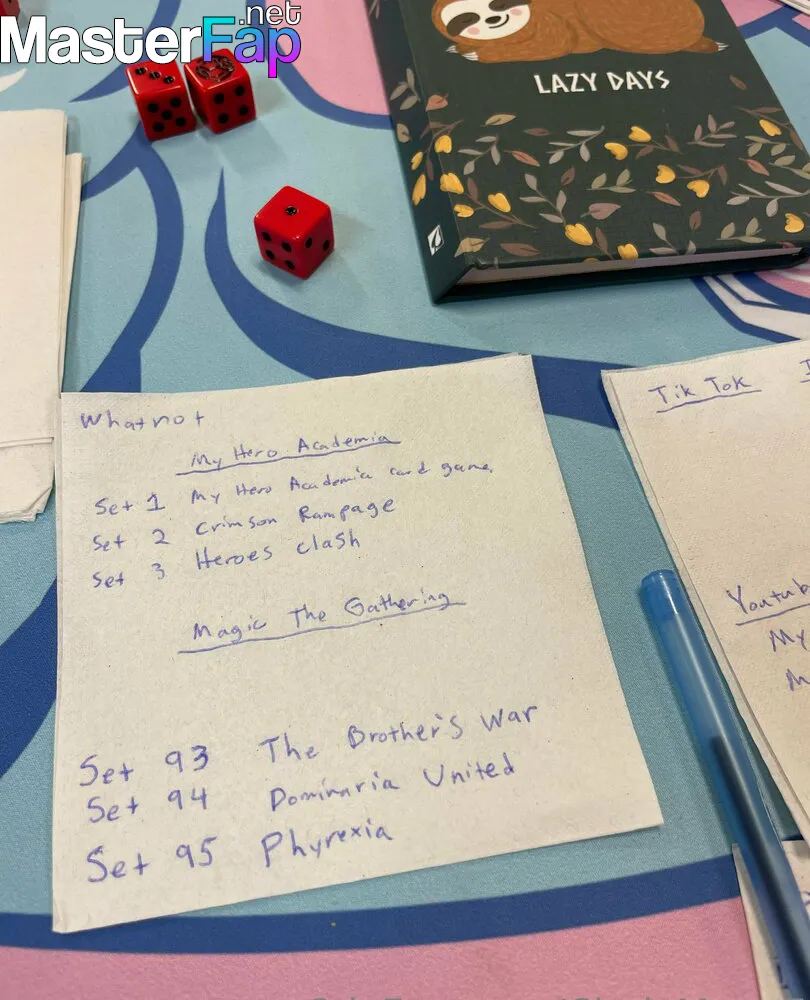 MasterFap.net
LAZY DAYS
Whatnot
My Hero Academia
Set 1 My Hero Academia card game
Set 2 Crimson Rampage
Set 3 Heroes clash
Magic The Gathering
Set 93 The Brother's War
Set 94 Dominaria United
Set 95 Phyrexia
Tik Tok
Youtub
My
M